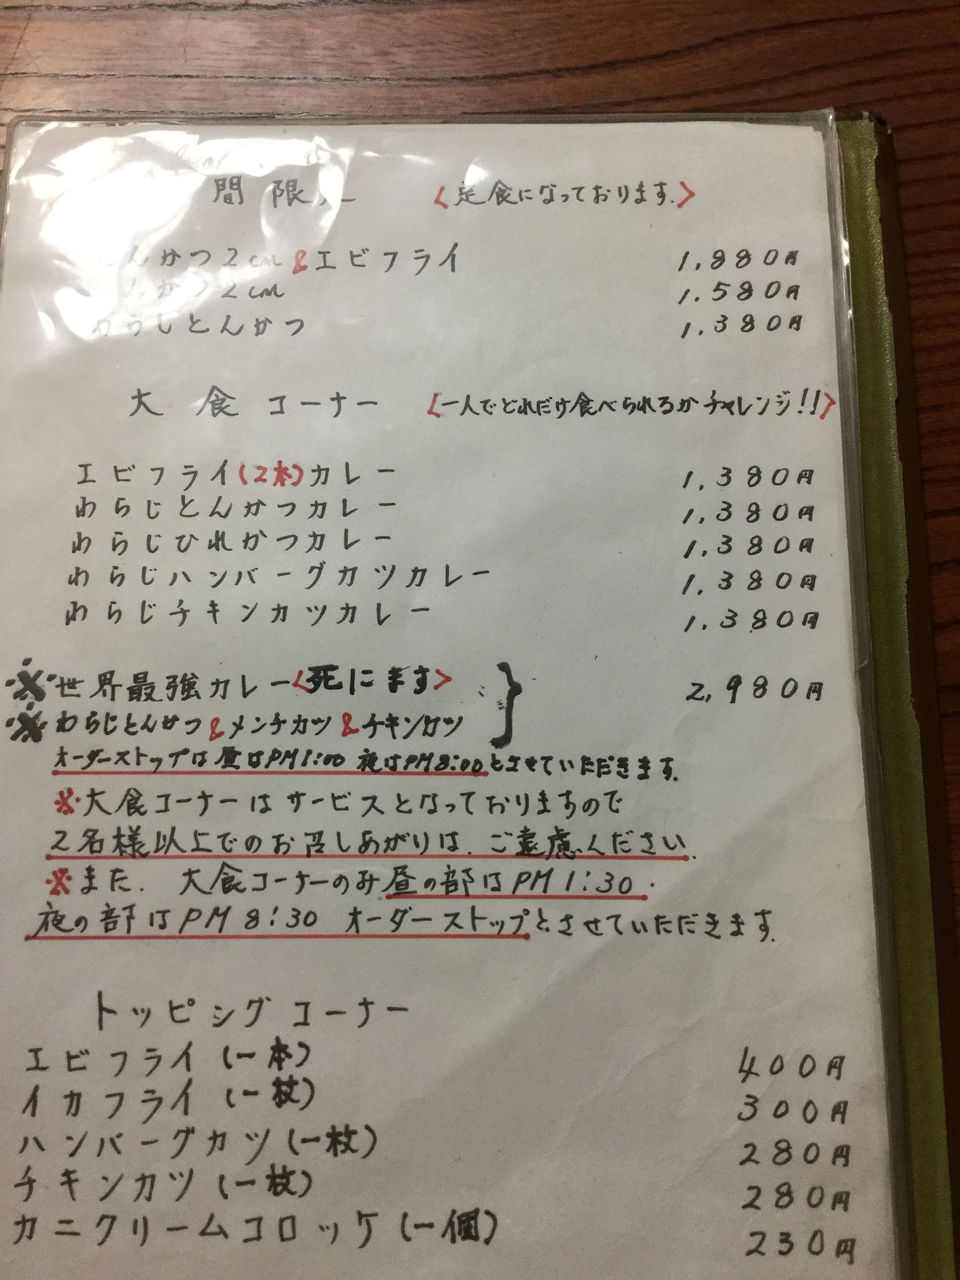 間限 <定食になっております.>
んかつ2cm&エビフライ 1,880円
んかつ2cm 1.580円
わらじとんかつ 1.380円
大食コーナー <一人でどれだけ食べられるかチャレンジ!!>
エビフライ(2本)カレー 1,380円
わらじとんかつカレー 1.380円
わらじひれかつカレー 1.380円
わらじハンバーグカツカレー 1,380円
わらじチキンカツカレー 1.380円
※世界最強カレー<死にます> 2,980円
※わらじとんかつ&メンチカツ&チキンカツ
オーダーストップは昼はPM1:00 夜はPM8:00とさせていただきます.
※大食コーナーはサービスとなっておりますので
2名様以上でのお召しあがりは.ご遠慮ください.
※また.大食コーナーのみ昼の部はPM1:30.
夜の部はPM8:30 オーダーストップとさせていただきます.
トッピングコーナー
エビフライ(一本) 400円
イカフライ(一枚) 300円
ハンバーグカツ(一枚) 280円
チキンカツ(一枚) 280円
カニクリームコロッケ(一個) 230円